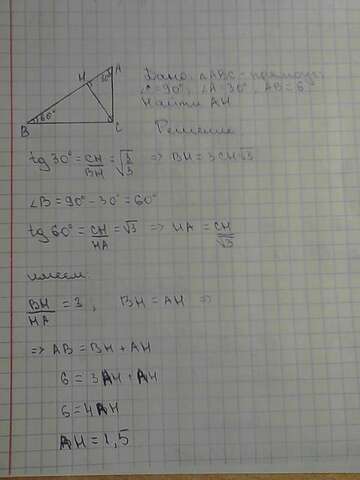 A
H
30°
B
60°
C
Дано: △ABC - прямоуг.
∠C=90°, ∠A=30°, AB=6
Найти AH
Решение
tg 30° = CH/BH = √3/3 ⇒ BH = 3CH√3
∠B = 90° - 30° = 60°
tg 60° = CH/HA = √3 ⇒ HA = CH/√3
имеем:
BH/HA = 3, BH = AH ⇒
⇒ AB = BH + AH
6 = 3AH + AH
6 = 4AH
AH = 1,5